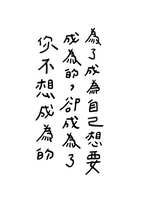 為了成為自己想要
成為的，卻成為了
你不想成為的